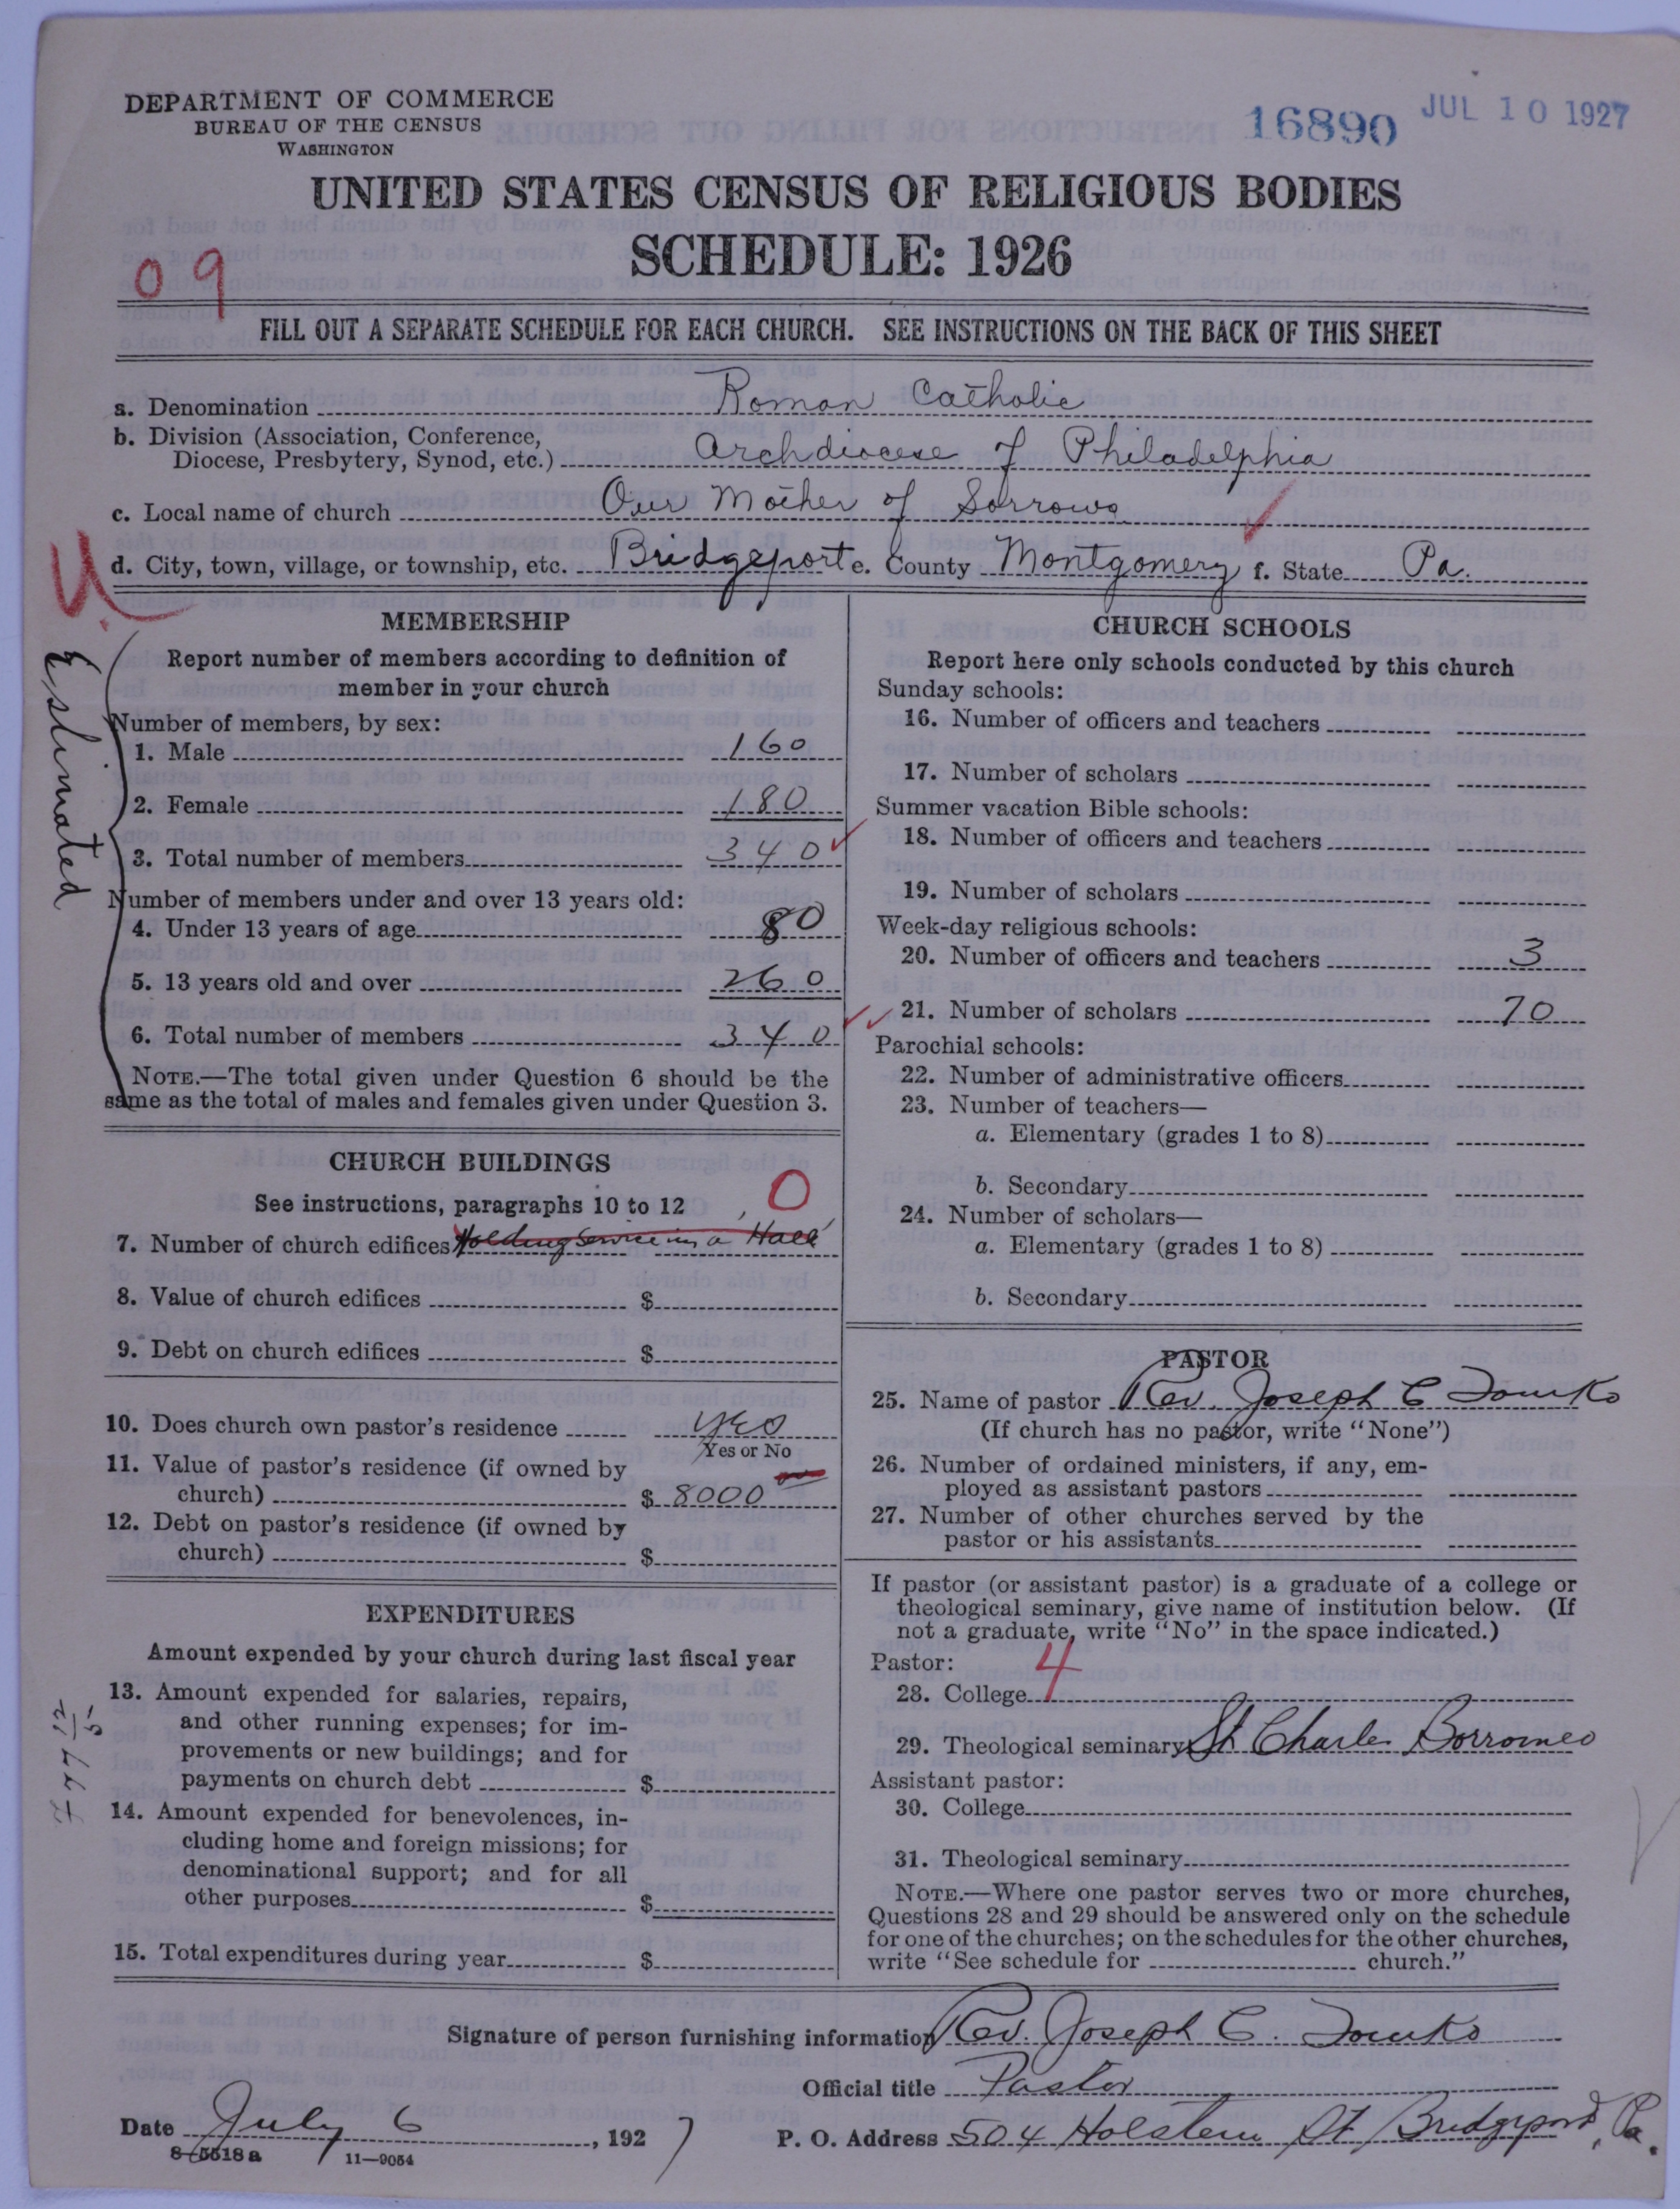 DEPARTMENT OF COMMERCE
BUREAU OF THE CENSUS
WASHINGTON
16890 JUL 10 1927
UNITED STATES CENSUS OF RELIGIOUS BODIES
SCHEDULE: 1926
09
FILL OUT A SEPARATE SCHEDULE FOR EACH CHURCH. SEE INSTRUCTIONS ON THE BACK OF THIS SHEET
a. Denomination Roman Catholic
b. Division (Association, Conference,
Diocese, Presbytery, Synod, etc.) Archdiocese of Philadelphia
c. Local name of church Our Mother of Sorrows
d. City, town, village, or township, etc. Bridgeport e. County Montgomery f. State Pa.
U
Estimated
MEMBERSHIP
Report number of members according to definition of
member in your church
Number of members, by sex:
1. Male 160
2. Female 180
3. Total number of members 340
Number of members under and over 13 years old:
4. Under 13 years of age 80
5. 13 years old and over 260
6. Total number of members 340
NOTE.—The total given under Question 6 should be the
same as the total of males and females given under Question 3.
CHURCH BUILDINGS
See instructions, paragraphs 10 to 12 0
7. Number of church edifices Holding Service in a Hall
8. Value of church edifices $
9. Debt on church edifices $
10. Does church own pastor's residence Yes
Yes or No
11. Value of pastor's residence (if owned by
church) $ 8000
12. Debt on pastor's residence (if owned by
church) $
EXPENDITURES
Amount expended by your church during last fiscal year
13. Amount expended for salaries, repairs,
and other running expenses; for im-
provements or new buildings; and for
payments on church debt $
14. Amount expended for benevolences, in-
cluding home and foreign missions; for
denominational support; and for all
other purposes $
15. Total expenditures during year $
CHURCH SCHOOLS
Report here only schools conducted by this church
Sunday schools:
16. Number of officers and teachers
17. Number of scholars
Summer vacation Bible schools:
18. Number of officers and teachers
19. Number of scholars
Week-day religious schools:
20. Number of officers and teachers 3
21. Number of scholars 70
Parochial schools:
22. Number of administrative officers
23. Number of teachers—
a. Elementary (grades 1 to 8)
b. Secondary
24. Number of scholars—
a. Elementary (grades 1 to 8)
b. Secondary
PASTOR
25. Name of pastor Rev. Joseph C Tomko
(If church has no pastor, write "None")
26. Number of ordained ministers, if any, em-
ployed as assistant pastors
27. Number of other churches served by the
pastor or his assistants
If pastor (or assistant pastor) is a graduate of a college or
theological seminary, give name of institution below. (If
not a graduate, write "No" in the space indicated.)
Pastor: 4
28. College
29. Theological seminary St Charles Borromeo
Assistant pastor:
30. College
31. Theological seminary
NOTE.—Where one pastor serves two or more churches,
Questions 28 and 29 should be answered only on the schedule
for one of the churches; on the schedules for the other churches,
write "See schedule for church."
Signature of person furnishing information Rev. Joseph C. Tomko
Official title Pastor
Date July 6, 1927 P. O. Address 504 Holstein St Bridgeport, Pa.
8-5518a 11-9054